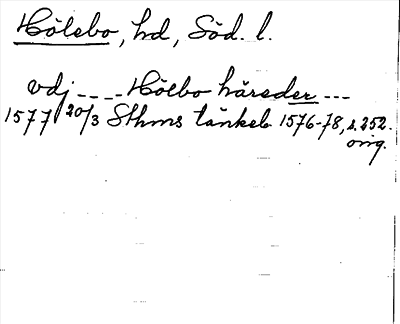 Hölebo, hd, Söd. l.
vdj _ _ _ _ Hölbo häreder ---
1577 20/3 Sthms tänkeb 1576-78, s. 252.
orig.